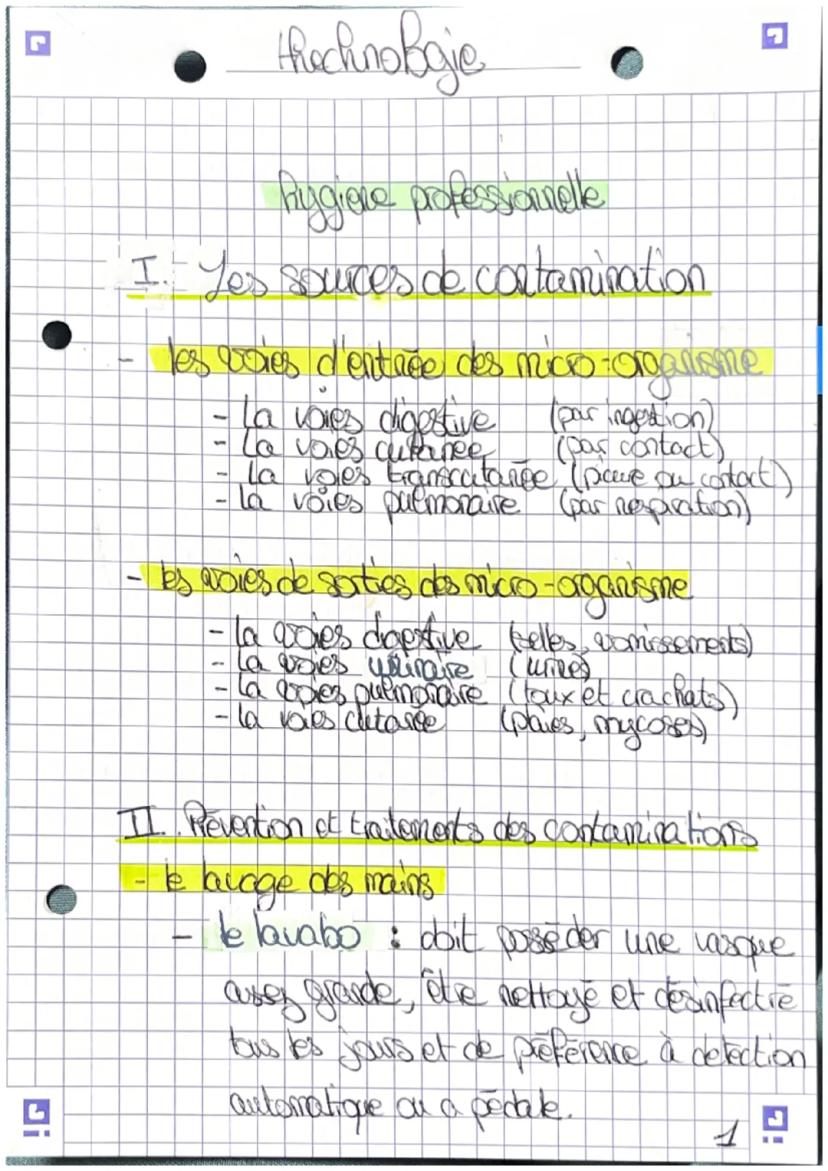 thechnologie
hygiene professionnelle
I. Les sources de contamination
- les voies d'entrée des micro-organisme
- La voies digestive (par ingestion)
- La voies cutanée (par contact)
- la voies transcutanée (picure ou contact)
- la voies pulmonaire (par respiration)
- les voies de sorties des micro-organisme
- la voies digestive (selles, vomissements)
- la voies urinaire (urine)
- la voies pulmonaire (toux et crachats)
- la voies cutanée (plaies, mycoses)
II. Prévention et traitements des contaminations
- le lavage des mains
- le lavabo : doit posséder une vasque
assez grande, être nettoyé et désinfectré
tous les jours et de préférence à detection
automatique ou a pédale.
1